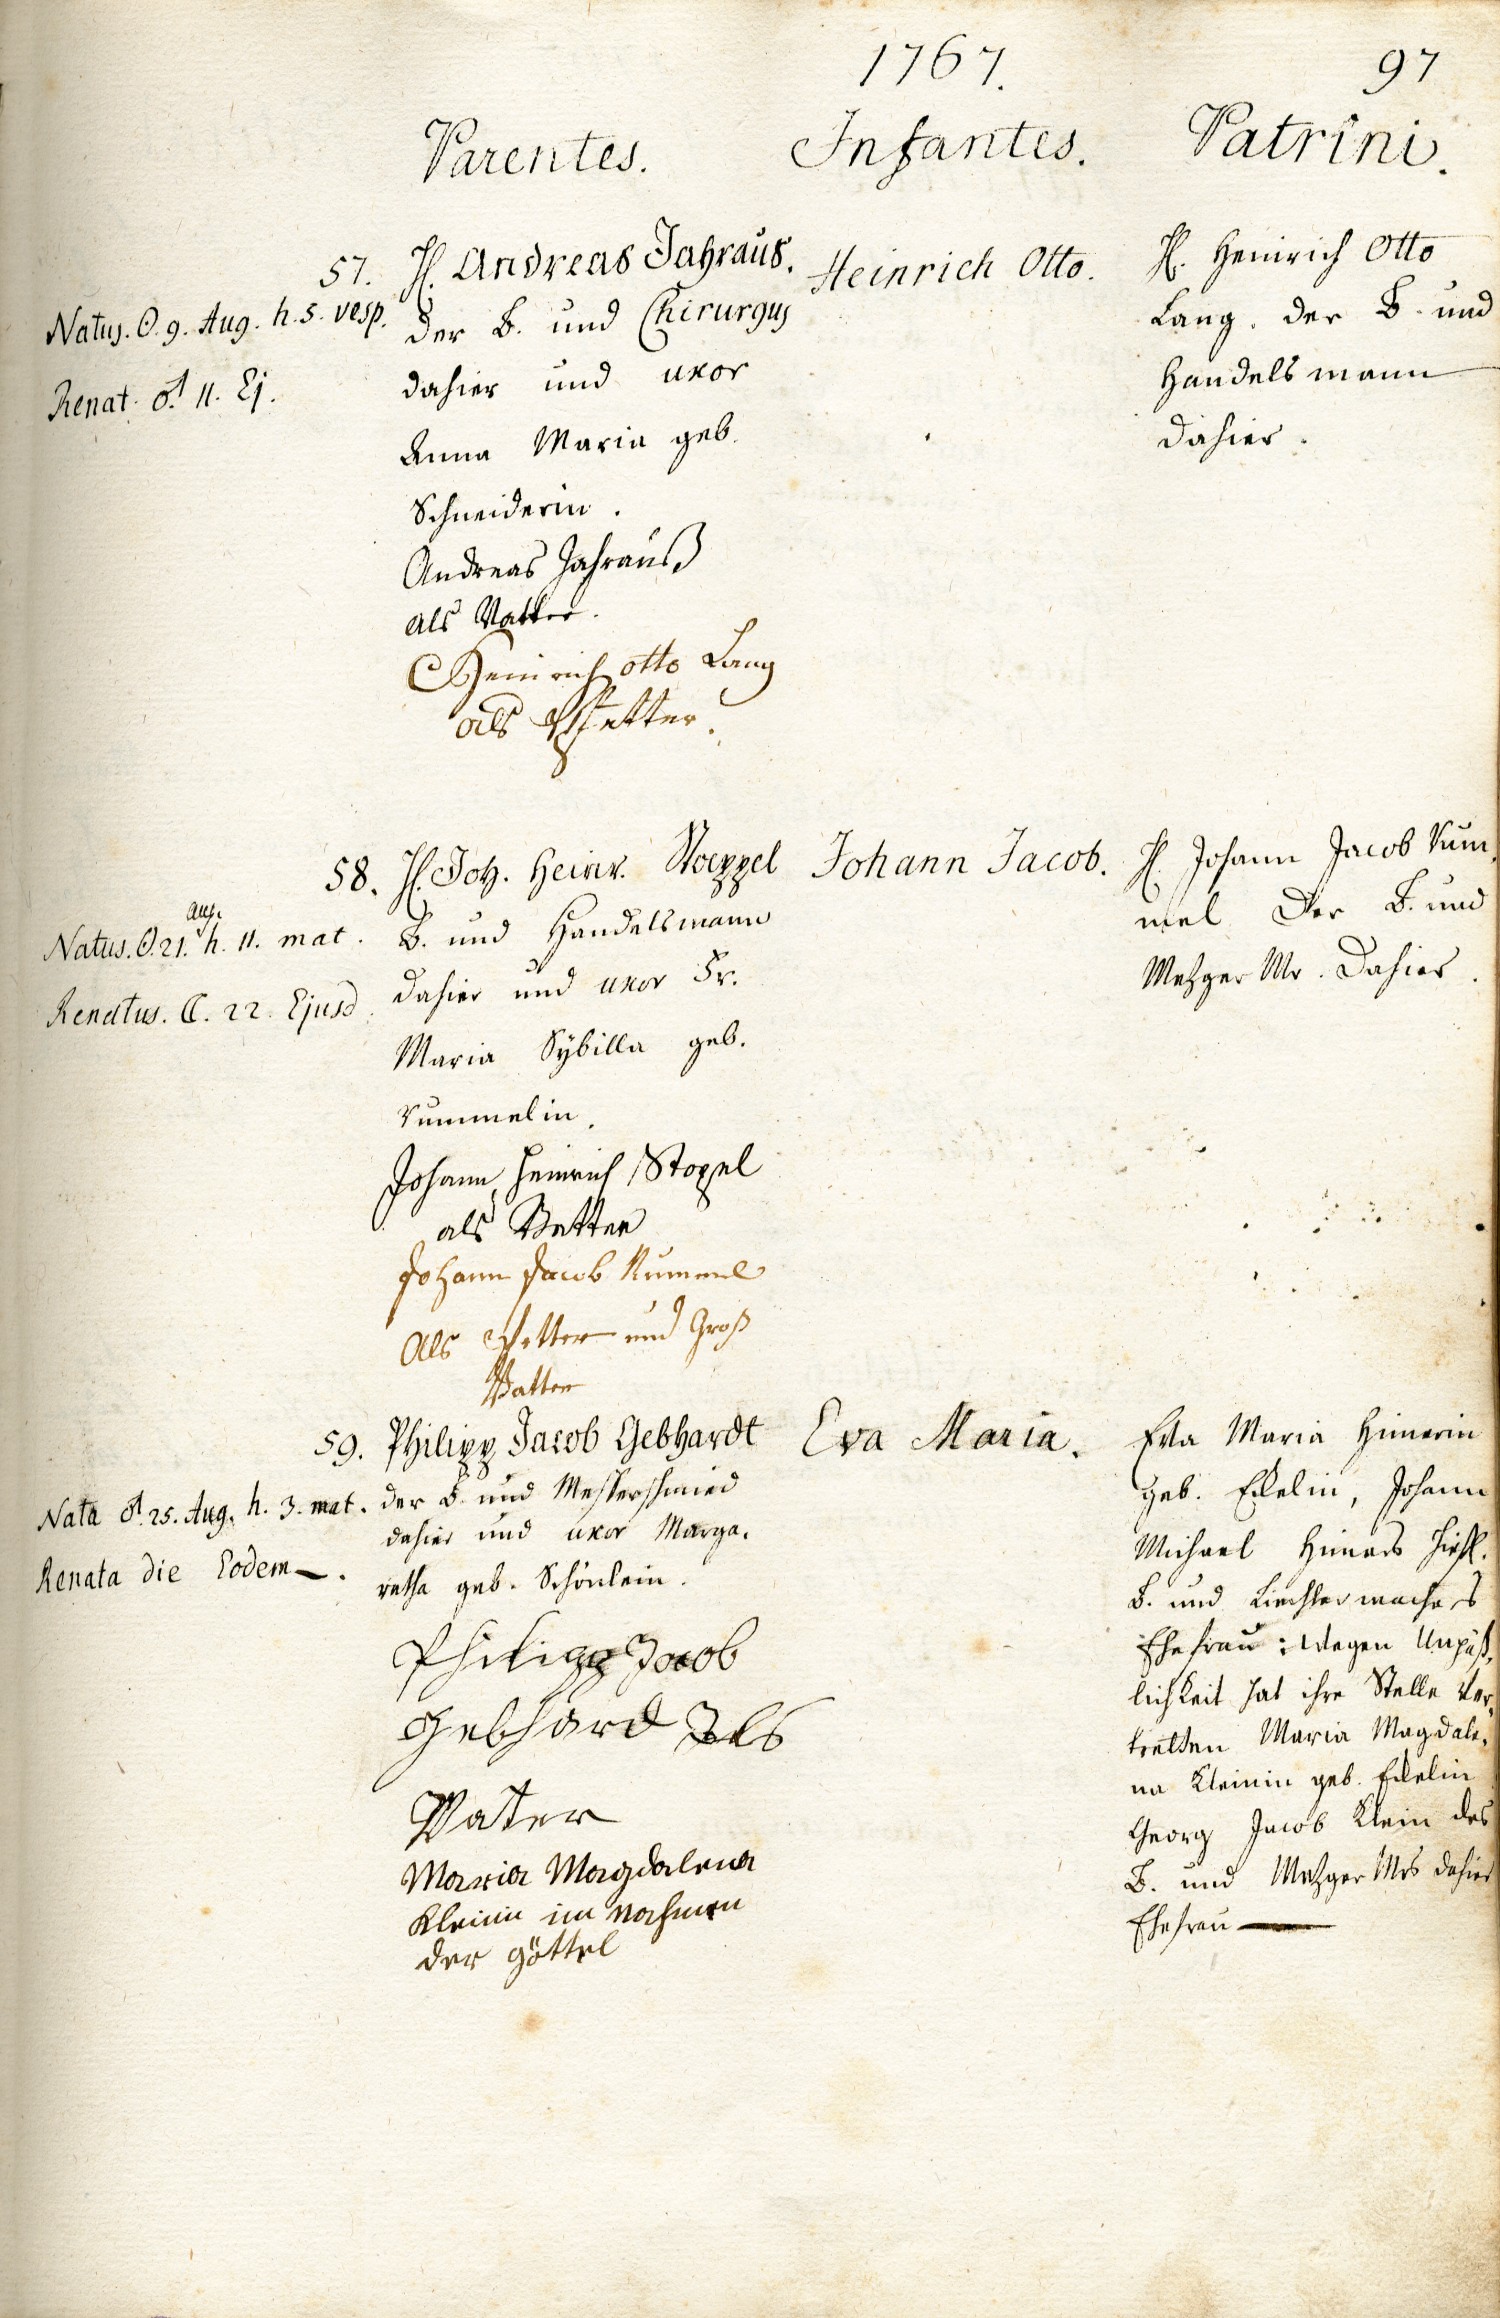 1767.
97
Parentes.
Infantes.
Patrini.
57.
Natus. ☉. 9. Aug. h. 5. vesp.
Renat. ♂. 11. Ej.
H. Andreas Jahraus.
der B. und Chirurgus
dahier und uxor
Anna Maria geb.
Schneiderin.
Andreas Jahrauß
als Vatter.
Heinrich otto Lang
als Pfetter.
Heinrich Otto.
H. Heinrich Otto
Lang. der B. und
Handelsmann
dahier.
58.
Aug.
Natus. ☉. 21. h. 11. mat.
Renatus. ☾. 22. Ejusd.
H. Joh. Heinr. Stoeppel
B. und Handelsmann
dahier und uxor Fr.
Maria Sÿbilla geb.
Rummelin.
Johann Heinrich Stopel
als Vatter
Johann Jacob Rummel
Als Pfetter und Groß
Vatter
Johann Jacob.
H. Johann Jacob Rum,
mel Der B. und
Mezger Mr. Dahier.
59.
Nata ♂. 25. Aug. h. 3. mat.
Renata die Eodem.
Philipp Jacob Gebhardt
der B. und Messerschmied
dahier und uxor Marga,
retha geb. Schönlein.
Philipp Jacob
Gebhard Als
Vater
Maria Magdalena
Kleinin im Nahmen
der Göttel
Eva Maria.
Eva Maria
geb. Johann
Michael
B. und Liechtermachers
Ehefrau: Wegen Unpäß,
lichkeit hat ihre Stelle ver,
tretten Maria Magdale,
na Kleinin geb.
Georg Jacob Klein des
B. und Mezger Mrs dahier
Ehefrau